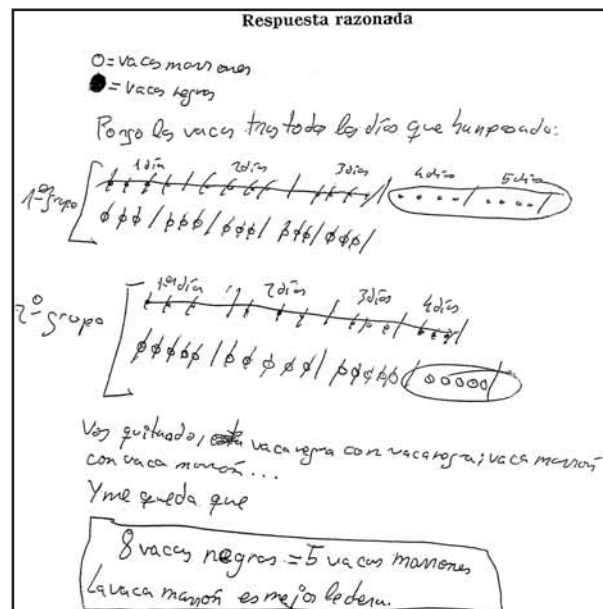 Respuesta razonada
O = vacas marrones
● = vacas negras
Pongo las vacas tras todos los días que han pasado:
1er grupo
1 día 2 días 3 días 4 días 5 días
2º grupo
1er día 2 días 3 días 4 días
Voy quitando, vaca negra con vaca negra; vaca marrón
con vaca marrón...
Y me queda que
8 vacas negras = 5 vacas marrones
La vaca marrón es mejor lechera.